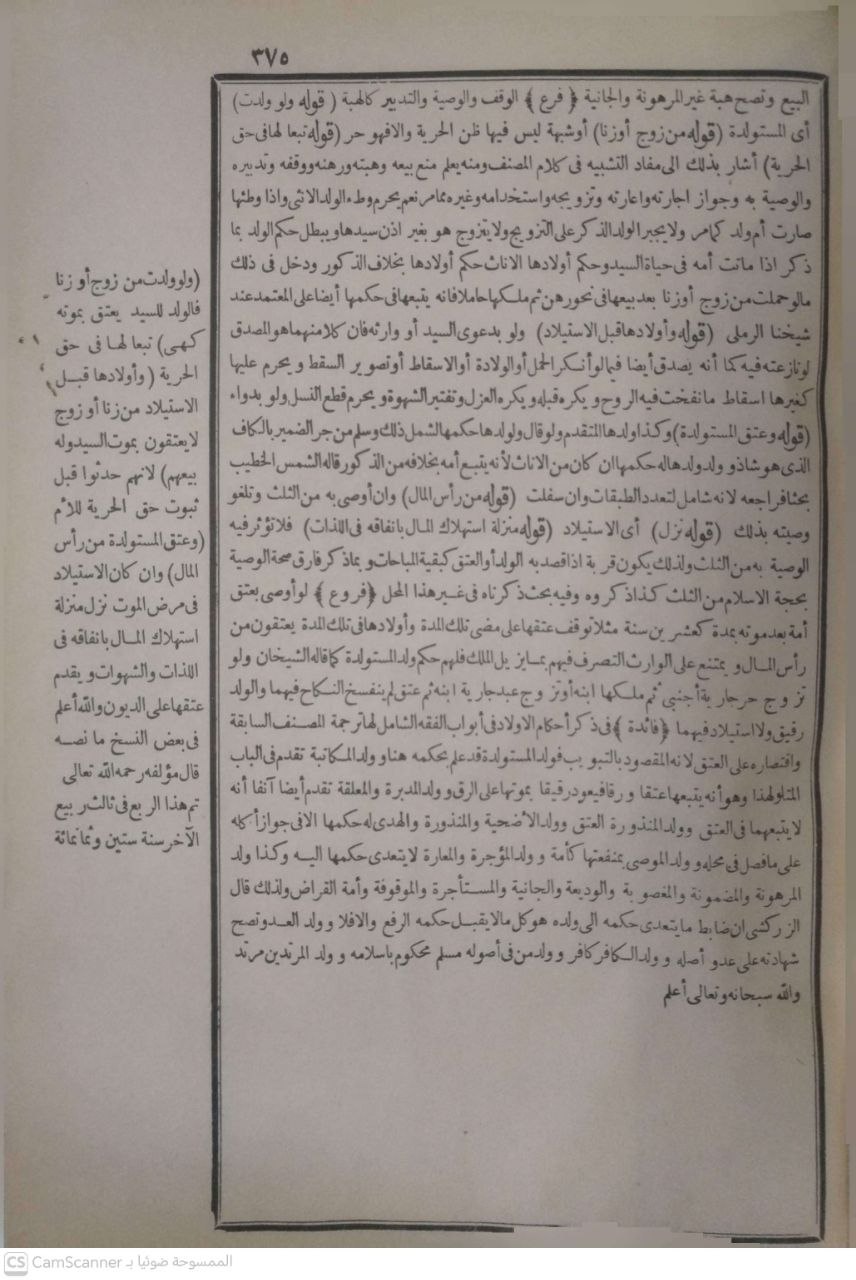 ٣٧٥
البيع وتصح هبة غير المرهونة والجانية ﴿ فرع ﴾ الوقف والوصية والتدبير كالهبة ( قوله ولو ولدت )
أى المستولدة ( قوله من زوج أوزنا ) أوشبهة ليس فيها ظن الحرية والافهو حر ( قوله تبعا لها فى حق
الحرية ) أشار بذلك الى مفاد التشبيه فى كلام المصنف ومنه يعلم منع بيعه وهبته ورهنه ووقفه وتدبيره
والوصية به وجواز اجارته واعارته وتزويجه واستخدامه وغيره مما مر نعم يحرم وطء الولد الانثى واذا وطئها
صارت أم ولد كمامر ولا يجبر الولد الذكر على التزويج ولا يتزوج هو بغير اذن سيدها ويبطل حكم الولد بما
ذكر اذا ماتت أمه فى حياة السيد وحكم أولادها الاناث حكم أولادها بخلاف الذكور ودخل فى ذلك
مالو حملت من زوج أوزنا بعد بيعها فى نحو رهن ثم ملكها حاملا فانه يتبعها فى حكمها أيضا على المعتمد عند
شيخنا الرملى ( قوله وأولادها قبل الاستيلاد ) ولو بدعوى السيد أو وارثه فان كلا منهما هو المصدق
لو نازعته فيه كما أنه يصدق أيضا فيما لو أنكر الحمل أو الولادة أو الاسقاط أو تصوير السقط ويحرم عليها
كغيرها اسقاط ما نفخت فيه الروح ويكره قبله ويكره العزل وتفتير الشهوة ويحرم قطع النسل ولو بدواء
( قوله وعتق المستولدة ) وكذا ولدها المتقدم ولو قال ولولدها حكمها لشمل ذلك وسلم من جر الضمير بالكاف
الذى هو شاذ وولد ولدها له حكمها ان كان من الاناث لأنه يتبع أمه بخلافه من الذكور قاله الشمس الخطيب
بحثا فراجعه لانه شامل لتعدد الطبقات وان سفلت ( قوله من رأس المال ) وان أوصى به من الثلث وتلغو
وصيته بذلك ( قوله نزل ) أى الاستيلاد ( قوله منزلة استهلاك المال بانفاقه فى اللذات ) فلا تؤثر فيه
الوصية به من الثلث ولذلك يكون قربة اذا قصد به الولد أو العتق كبقية المباحات وبما ذكر فارق صحة الوصية
بحجة الاسلام من الثلث كذا ذكروه وفيه بحث ذكرناه فى غير هذا المحل ﴿ فروع ﴾ لو أوصى بعتق
أمة بعد موته بمدة كعشرين سنة مثلا توقف عتقها على مضى تلك المدة وأولادها فى تلك المدة يعتقون من
رأس المال ويمتنع على الوارث التصرف فيهم بما يزيل الملك فلهم حكم ولد المستولدة كما قاله الشيخان ولو
تزوج حر جارية أجنبى ثم ملكها ابنه أو تزوج عبد جارية ابنه ثم عتق لم ينفسخ النكاح فيهما والولد
رقيق ولا استيلاد فيهما ﴿ فائدة ﴾ فى ذكر أحكام الاولاد فى أبواب الفقه الشامل لها ترجمة المصنف السابقة
واقتصاره على العتق لانه المقصود بالتبويب فولد المستولدة قد علم بحكمه هنا وولد المكاتبة تقدم فى الباب
المتلو لهذا وهو أنه يتبعها عتقا ورقا فيعود رقيقا بموتها على الرق وولد المدبرة والمعلقة تقدم أيضا آنفا أنه
لا يتبعهما فى العتق وولد المنذورة العتق وولد الأضحية والمنذورة والهدى له حكمها الا فى جواز أكله
على ما فصل فى محله وولد الموصى بمنفعتها كأمة وولد المؤجرة والمعارة لا يتعدى حكمها اليه وكذا ولد
المرهونة والمضمونة والمغصوبة والوديعة والجانية والمستأجرة والموقوفة وأمة القراض ولذلك قال
الزركشى ان ضابط ما يتعدى حكمه الى ولده هو كل ما لا يقبل حكمه الرفع والا فلا وولد العدو تصح
شهادته على عدو أصله وولد الكافر كافر وولد من فى أصوله مسلم محكوم باسلامه وولد المرتدين مرتد
والله سبحانه وتعالى أعلم
( ولو ولدت من زوج أو زنا
فالولد للسيد يعتق بموته
كهى ) تبعا لها فى حق
الحرية ( وأولادها قبل
الاستيلاد من زنا أو زوج
لا يعتقون بموت السيد وله
بيعهم ) لانهم حدثوا قبل
ثبوت حق الحرية للأم
( وعتق المستولدة من رأس
المال ) وان كان الاستيلاد
فى مرض الموت نزل منزلة
استهلاك المال بانفاقه فى
اللذات والشهوات ويقدم
عتقها على الديون والله أعلم
فى بعض النسخ ما نصه
قال مؤلفه رحمه الله تعالى
تم هذا الربع فى ثالث ربيع
الآخر سنة ستين وثمانمائة
CS CamScanner الممسوحة ضوئيا بـ